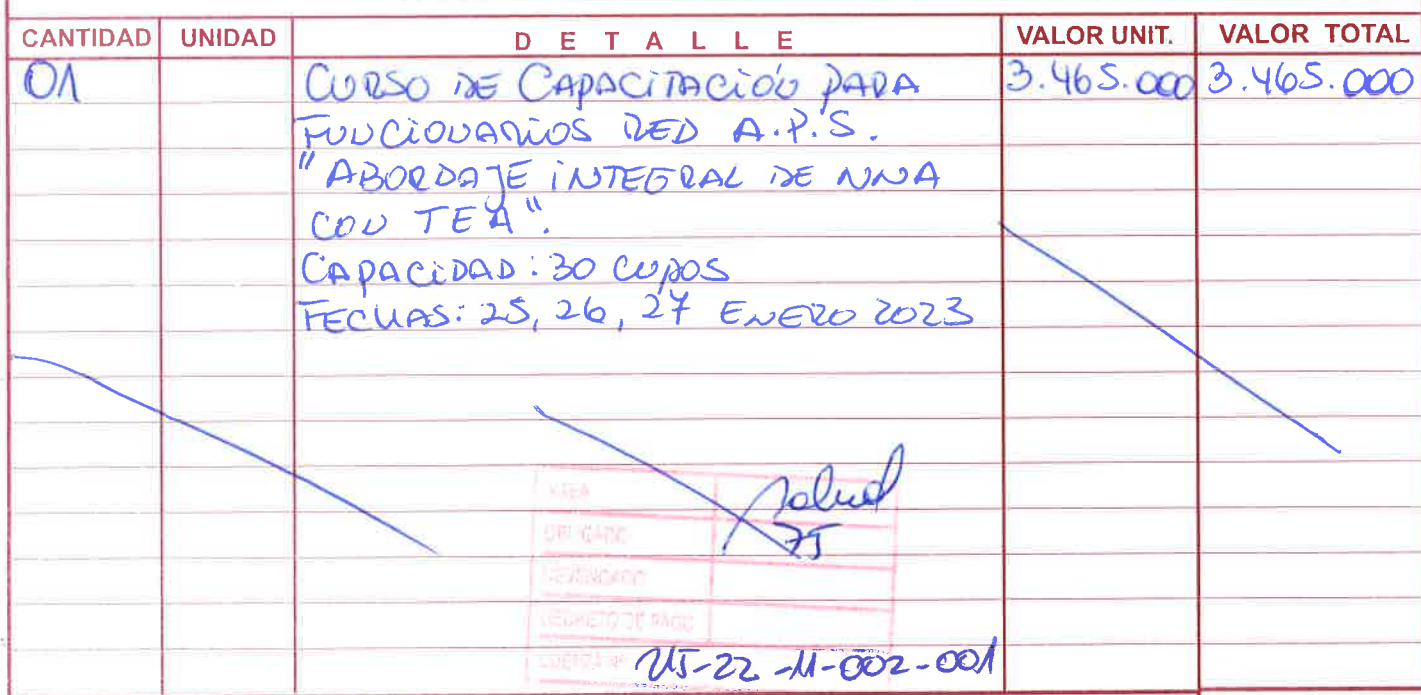 CANTIDAD UNIDAD DETALLE VALOR UNIT. VALOR TOTAL
01 CURSO DE CAPACITACIÓN PARA 3.465.000 3.465.000
FUNCIONARIOS RED A.P.S.
"ABORDAJE INTEGRAL DE NNA
CON TEA".
CAPACIDAD: 30 CUPOS
FECHAS: 25, 26, 27 ENERO 2023
Salud
OBLIGADO
DEVENGADO
DECRETO DE PAGO
CUENTA Nº 215-22-11-002-001